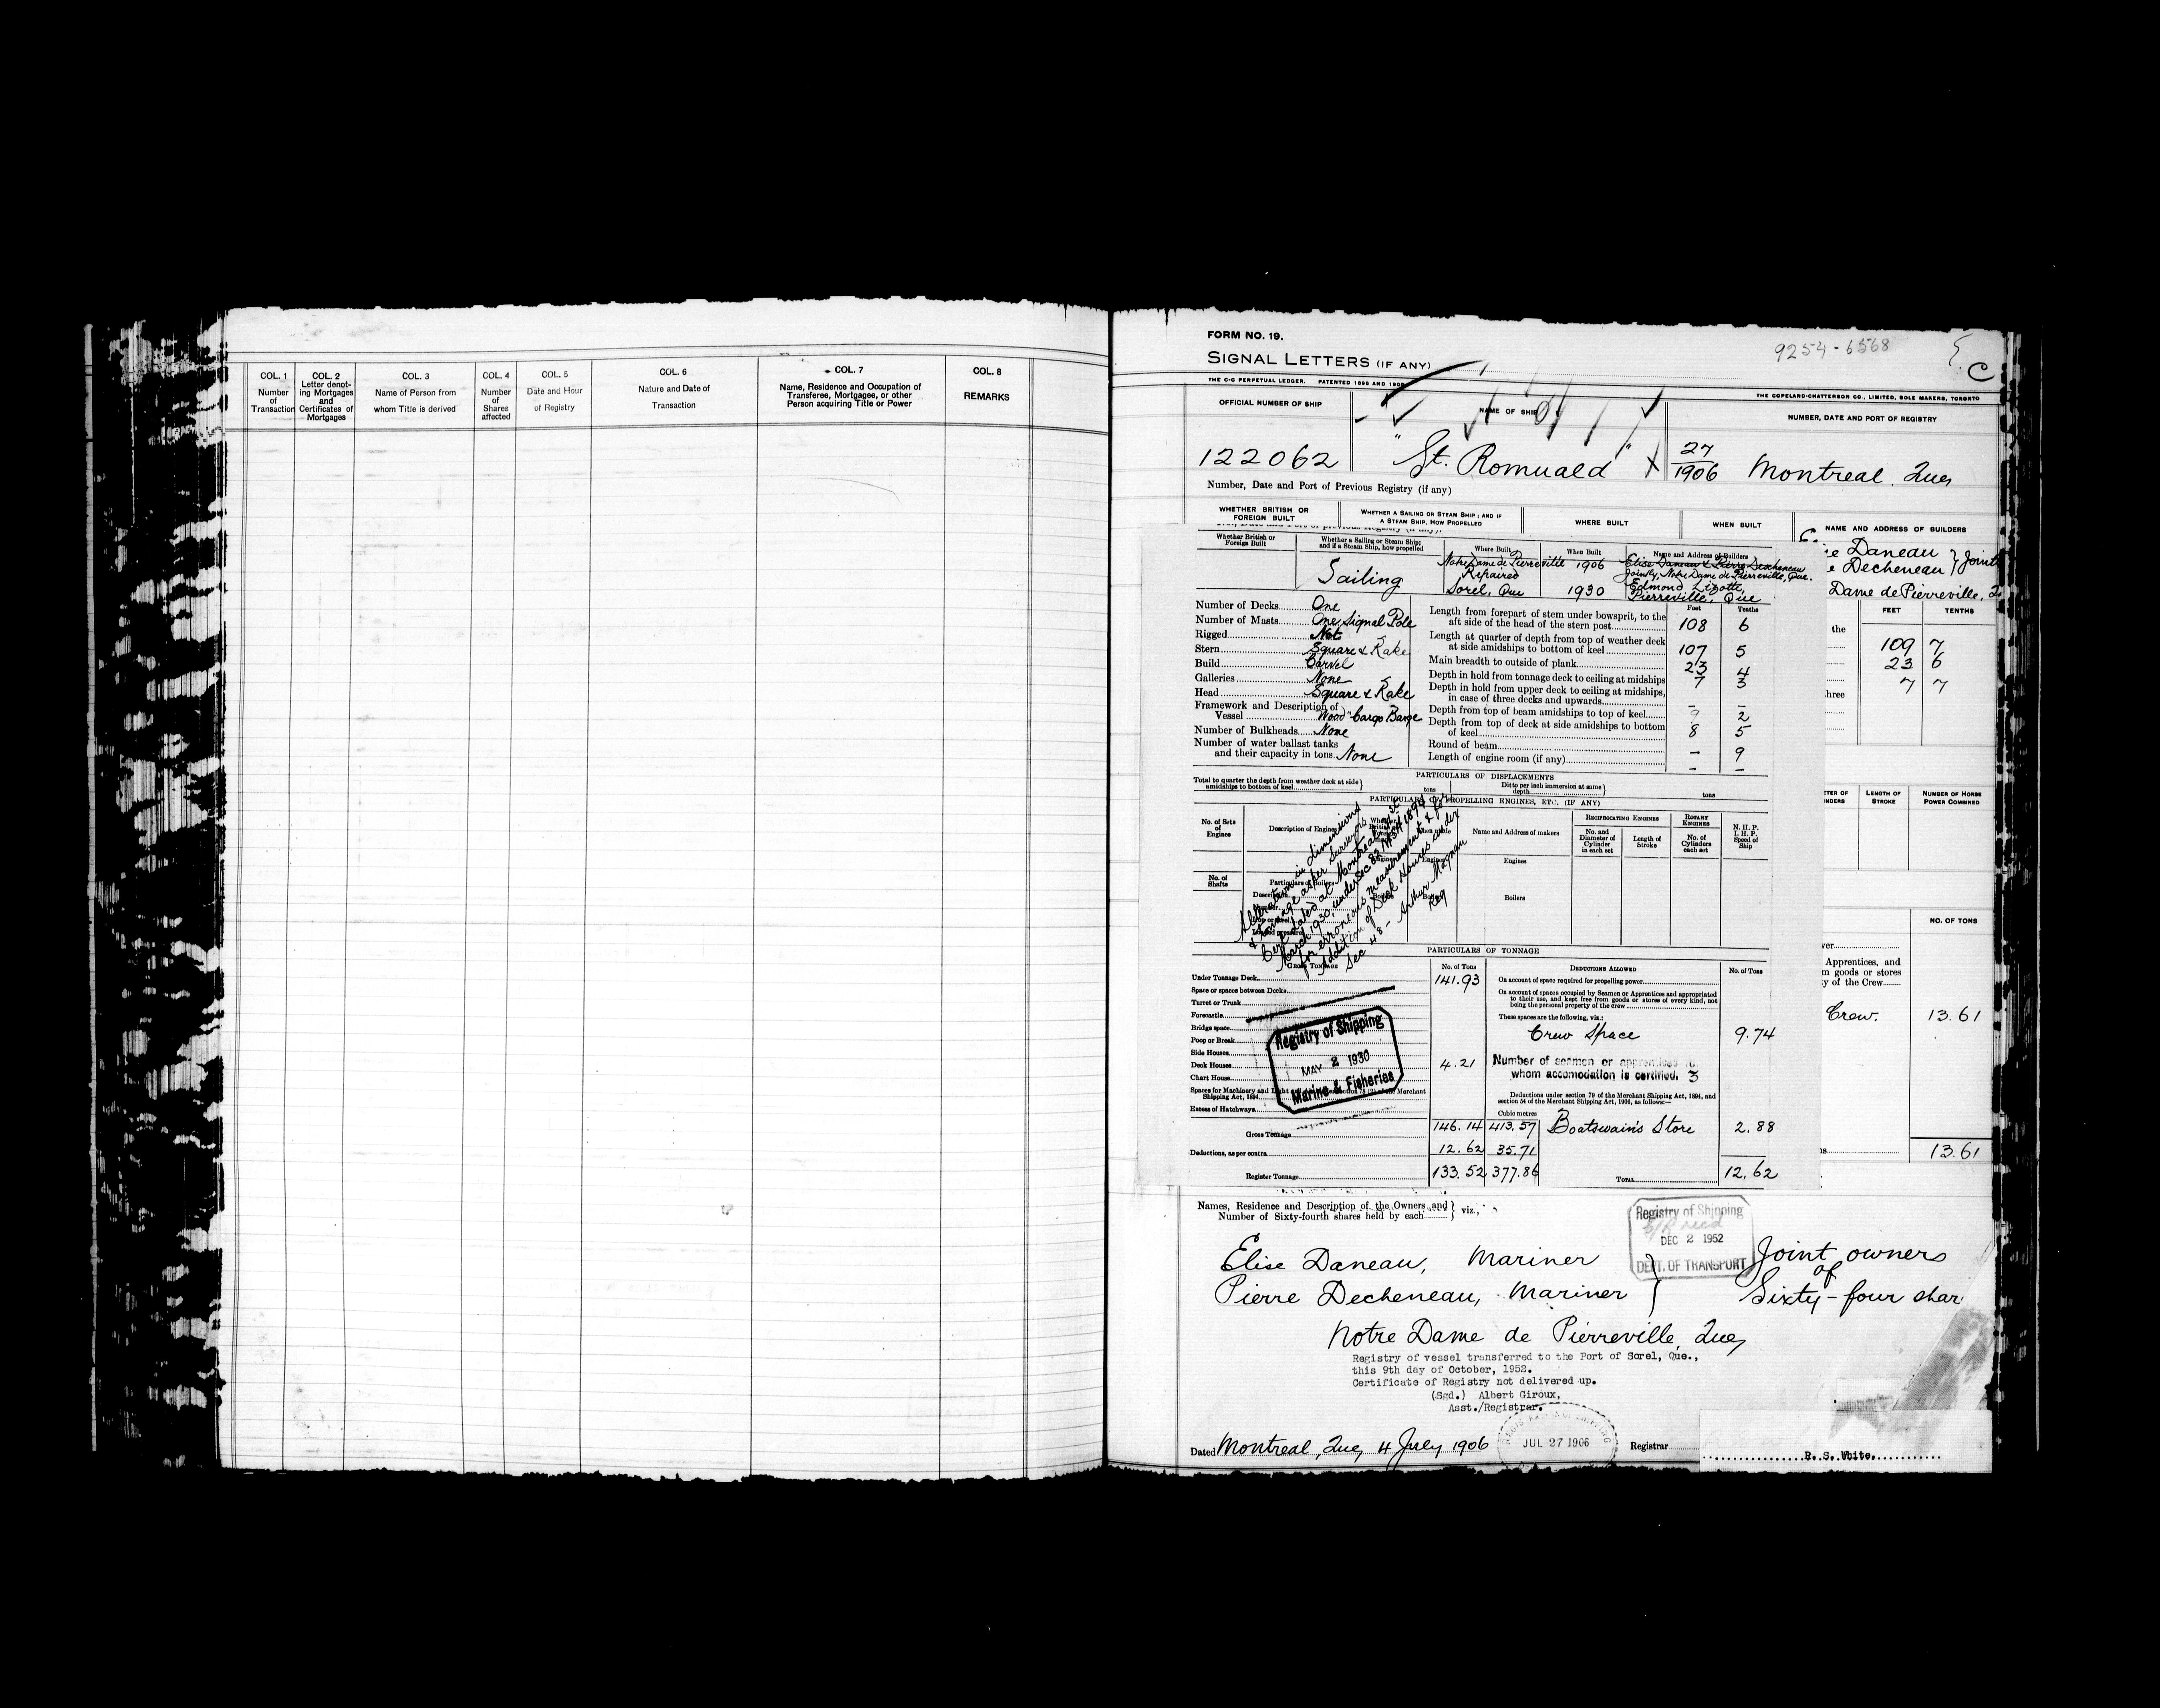 COL. 1
Number of Transaction
COL. 2
Letter denoting Mortgages and Certificates of Mortgages
COL. 3
Name of Person from whom Title is derived
COL. 4
Number of Shares affected
COL. 5
Date and Hour of Registry
COL. 6
Nature and Date of Transaction
COL. 7
Name, Residence and Occupation of Transferee, Mortgagee, or other Person acquiring Title or Power
COL. 8
REMARKS
FORM NO. 19.
9254-6568
C
SIGNAL LETTERS (IF ANY)
THE C-C PERPETUAL LEDGER. PATENTED 1896 AND
THE COPELAND-CHATTERSON CO., LIMITED, SOLE MAKERS, TORONTO
OFFICIAL NUMBER OF SHIP
NAME OF SHIP
NUMBER, DATE AND PORT OF REGISTRY
122062
"St. Romuald"
27
1906 Montreal. Que
Number, Date and Port of Previous Registry (if any)
WHETHER BRITISH OR FOREIGN BUILT
WHETHER A SAILING OR STEAM SHIP; AND IF A STEAM SHIP, HOW PROPELLED
WHERE BUILT
WHEN BUILT
NAME AND ADDRESS OF BUILDERS
Daneau } Joint
Decheneau
Dame de Pierreville,
Whether British or Foreign Built
Whether a Sailing or Steam Ship; and if a Steam Ship, how propelled
Where Built
When Built
Name and Address of Builders
Sailing
Notre Dame de Pierreville 1906
Repaired
Sorel, Que 1930
Elise Daneau & Pierre Descheneau
Jointly, Notre Dame de Pierreville, Que.
Edmond Lizotte,
Pierreville, Que
Feet Tenths
Number of Decks One
Number of Masts One, Signal Pole
Rigged Not
Stern Square & Rake
Build Carvel
Galleries None
Head Square & Rake
Framework and Description of Vessel "Wood" Cargo Barge
Number of Bulkheads None
Number of water ballast tanks and their capacity in tons None
Length from forepart of stem under bowsprit, to the aft side of the head of the stern post 108 6
Length at quarter of depth from top of weather deck at side amidships to bottom of keel 107 5
Main breadth to outside of plank 23 4
Depth in hold from tonnage deck to ceiling at midships 7 3
Depth in hold from upper deck to ceiling at midships, in case of three decks and upwards - -
Depth from top of beam amidships to top of keel 9 2
Depth from top of deck at side amidships to bottom of keel 8 5
Round of beam - 9
Length of engine room (if any) - -
FEET TENTHS
the
109 7
23 6
hree 7 7
PARTICULARS OF DISPLACEMENTS
Total to quarter the depth from weather deck at side amidships to bottom of keel tons
Ditto per inch immersion at same depth tons
PARTICULARS OF PROPELLING ENGINES, ETC. (IF ANY)
No. of Sets of Engines
Description of Engines
Name and Address of makers
RECIPROCATING ENGINES
No. and Diameter of Cylinder in each set
Length of Stroke
ROTARY ENGINES
No. of Cylinders each set
N. H. P.
I. H. P.
Speed of Ship
No. of Shafts
Particulars of Boilers
Engines
Boilers
LENGTH OF STROKE
NUMBER OF HORSE POWER COMBINED
Alteration in dimensions
& tonnage as per Surveyors
Cert. dated at Montreal
March 1930, under Sec 82 MSA 1894
for erroneous measurement & for
addition of Deck Houses under
Sec 48 - Arthur Magnan
Reg
PARTICULARS OF TONNAGE
GROSS TONNAGE
No. of Tons
DEDUCTIONS ALLOWED
No. of Tons
Under Tonnage Deck 141.93
Space or spaces between Decks
Turret or Trunk
Forecastle
Bridge space
Poop or Break
Side Houses
Deck Houses 4.21
Chart House
Spaces for Machinery and Light Merchant Shipping Act, 1894
Excess of Hatchways
Cubic metres
Gross Tonnage 146.14 413.57
Deductions, as per contra 12.62 35.71
Register Tonnage 133.52 377.86
Registry of Shipping
MAY 2 1930
Marine & Fisheries
On account of space required for propelling power
On account of spaces occupied by Seamen or Apprentices and appropriated to their use, and kept free from goods or stores of every kind, not being the personal property of the crew
These spaces are the following, viz.:
Crew Space 9.74
Number of seamen or apprentices
whom accomodation is certified. 3
Deductions under section 79 of the Merchant Shipping Act, 1894, and section 54 of the Merchant Shipping Act, 1906, as follows:—
Boatswain's Store 2.88
TOTAL 12.62
NO. OF TONS
Apprentices, and
goods or stores
of the Crew
Crew. 13.61
13.61
Names, Residence and Description of the Owners, and Number of Sixty-fourth shares held by each } viz.,
Registry of Shipping
DEC 2 1952
DEPT. OF TRANSPORT
Elise Daneau, Mariner
Pierre Decheneau, Mariner
Joint owners
of
Sixty-four shar
Notre Dame de Pierreville, Que
Registry of vessel transferred to the Port of Sorel, Que.,
this 9th day of October, 1952.
Certificate of Registry not delivered up.
(Sgd.) Albert Giroux,
Asst./Registrar.
Dated Montreal, Que, 4 July 1906
JUL 27 1906
Registrar
R. S. White.